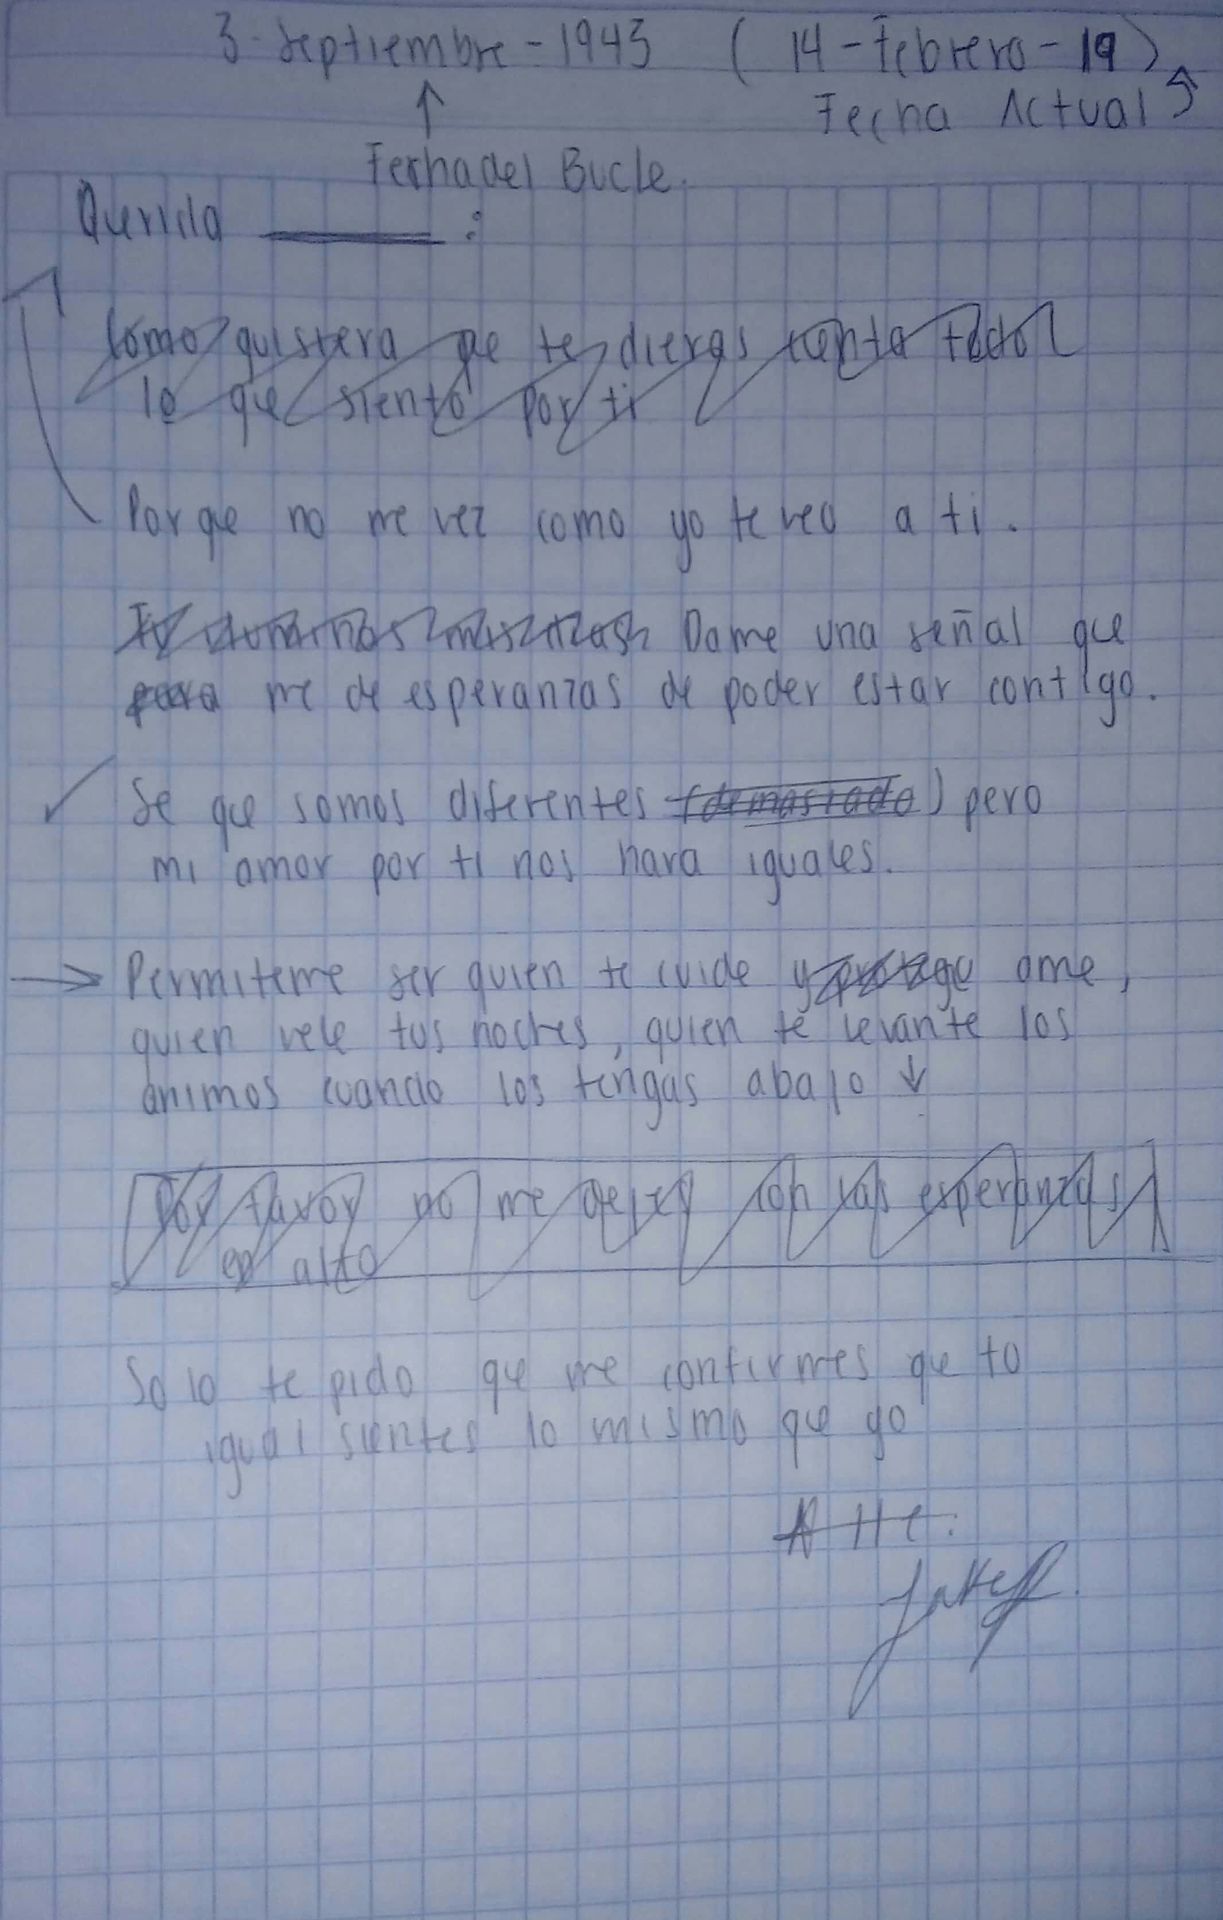 3-Septiembre-1943 (14-Febrero-19)
Fecha Actual
Fecha del Bucle.
Querida ______:
Como quisiera que te dieras cuenta todo
lo que siento por ti
Porque no me vez como yo te veo a ti.
Dame una señal que
para me de esperanzas de poder estar contigo.
Se que somos diferentes (demasiado) pero
mi amor por ti nos hara iguales.
Permiteme ser quien te cuide y protege ame,
quien vele tus noches, quien te levante los
animos cuando los tengas abajo ↓
Por favor no me dejes con las esperanzas
en alto
Solo te pido que me confirmes que tu
igual sientes lo mismo que yo
Atte.